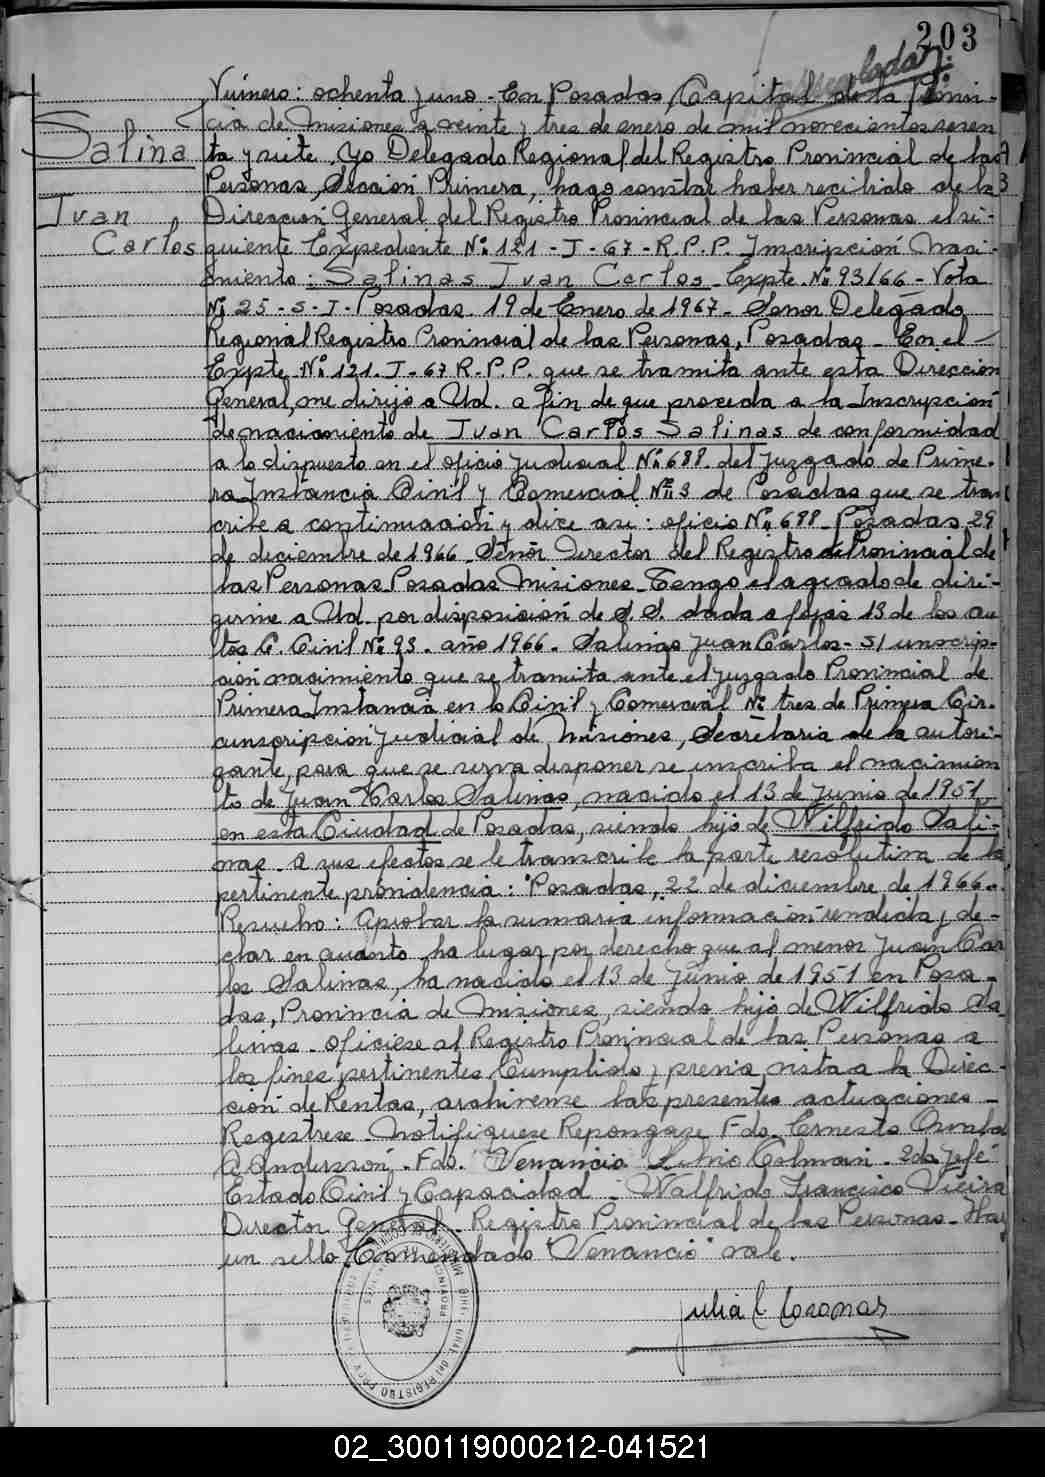 203
Salina
Juan
Carlos
Número: ochenta y uno - En Posadas, Capital de la Provin-
cia de Misiones a veinte y tres de enero de mil novecientos sesen
ta y siete, Yo Delegado Regional del Registro Provincial de las
Personas, Sección Primera, hago constar haber recibido de la
Dirección General del Registro Provincial de las Personas el si-
guiente Expediente Nº 121 - J - 67 - R.P.P. Inscripción Naci-
miento: Salinas Juan Carlos - Expte. Nº 93/66 - Nota
Nº 25 - S - I - Posadas. 19 de Enero de 1967 - Señor Delegado
Regional Registro Provincial de las Personas, Posadas - En el
Expte - Nº 121 - J - 67 R.P.P. que se tramita ante esta Dirección
General, me dirijo a Ud. a fin de que proceda a la Inscripción
de nacimiento de Juan Carlos Salinas de conformidad
a lo dispuesto en el oficio judicial Nº 688 del Juzgado de Prime-
ra Instancia Civil y Comercial Nº 3 de Posadas que se trans
cribe a continuación y dice asi: oficio Nº 688 - Posadas, 29
de diciembre de 1966 - Señor Director del Registro de Provincial de
las Personas - Posadas Misiones - Tengo el agrado de diri-
girme a Ud. por disposición de S.S. dada a fojas 13 de los au
tos C. Civil Nº 93 - año 1966 - Salinas Juan Carlos - S/ inscrip-
ción nacimiento que se tramita ante el Juzgado Provincial de
Primera Instancia en lo Civil y Comercial Nº tres de Primera Cir-
cunscripción Judicial de Misiones, Secretaria de la autori-
zante, para que se sirva disponer se inscriba el nacimien
to de Juan Carlos Salinas, nacido el 13 de Junio de 1951
en esta Ciudad de Posadas, siendo hijo de Wilfrido Sali-
nas - A sus efectos se le transcribe la parte resolutiva de la
pertinente providencia: "Posadas, 22 de diciembre de 1966 -
Resuelvo: Aprobar la sumaria información rendida y de-
clar en cuanto ha lugar por derecho que al menor Juan Car
los Salinas, ha nacido el 13 de Junio de 1951 en Posa-
das, Provincia de Misiones, siendo hijo de Wilfrido Sa
linas - Oficiese al Registro Provincial de las Personas a
los fines pertinentes Cumplido y previa vista a la Direc-
ción de Rentas, archivense las presentes actuaciones -
Registrese - Notifiquese Repongase Fdo. Ernesto
A. Andersson - Fdo. Venancio Colman - 2do Jefe
Estado Civil y Capacidad - Walfrido Francisco Vieira
Director General - Registro Provincial de las Personas - Hay
un sello. Enmendado "Venancio" vale.
02_300119000212-041521